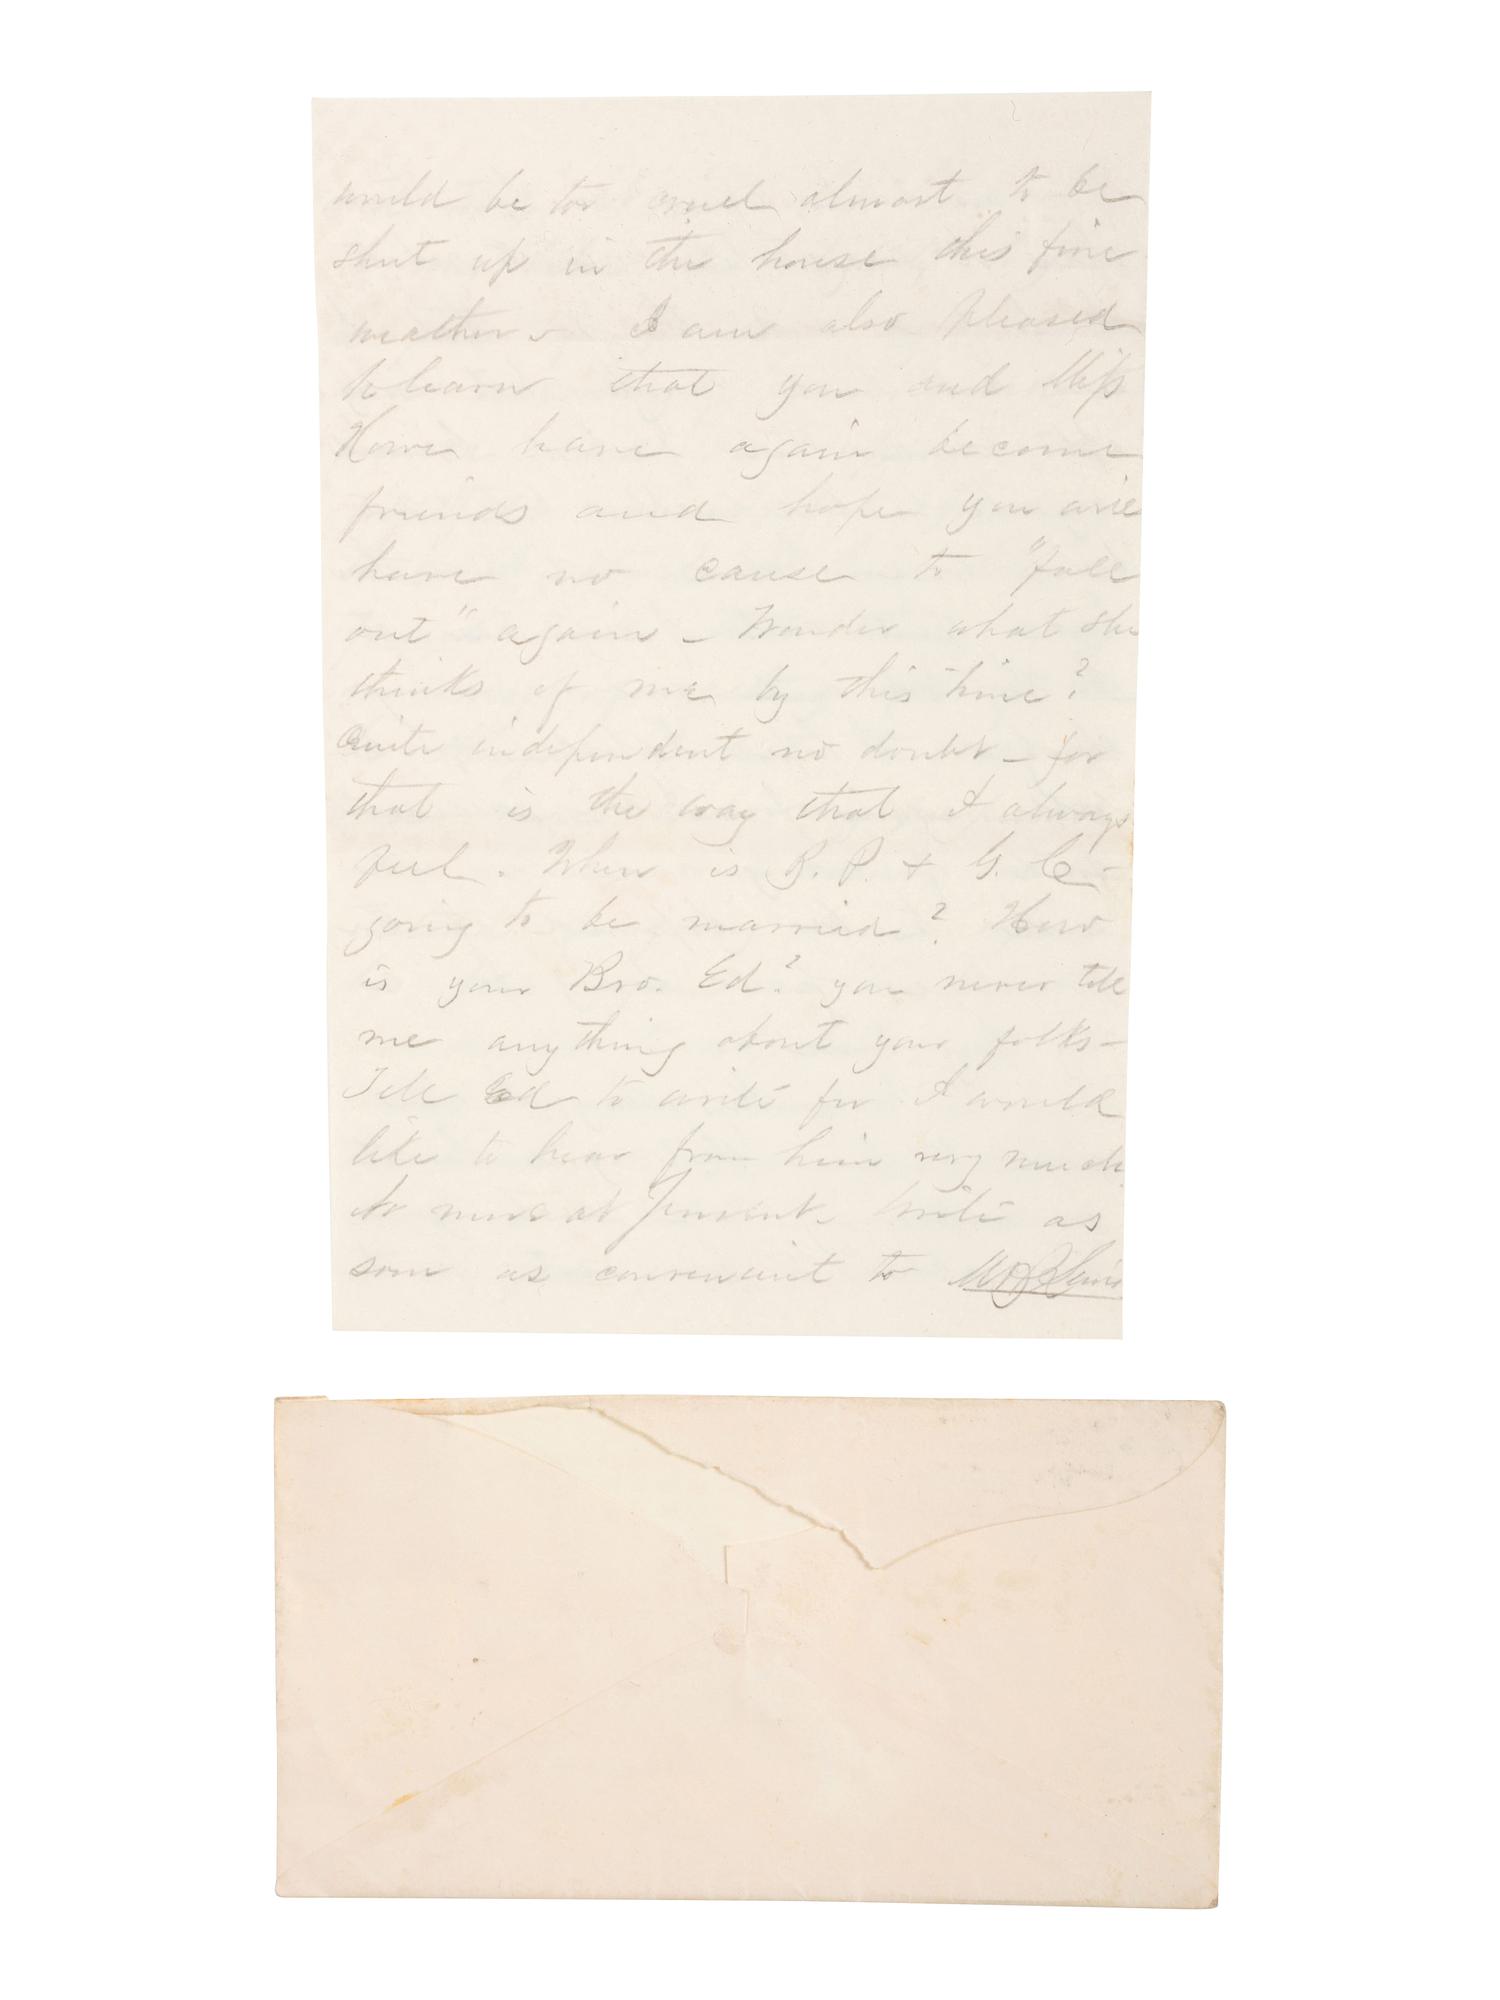 would be too cruel almost to be
shut up in the house this fine
weather - I am also pleased
to learn that you and Miss
Howe have again become
friends and hope you will
have no cause to "fall
out" again - Wonder what she
thinks of me by this time?
Quite independent no doubt - for
that is the way that I always
feel. When is B. P. + G. C -
going to be married? How
is your Bro. Ed? you never tell
me anything about your folks -
Tell Ed to write for I would
like to hear from him very much
No more at present. Write as
soon as convenient to